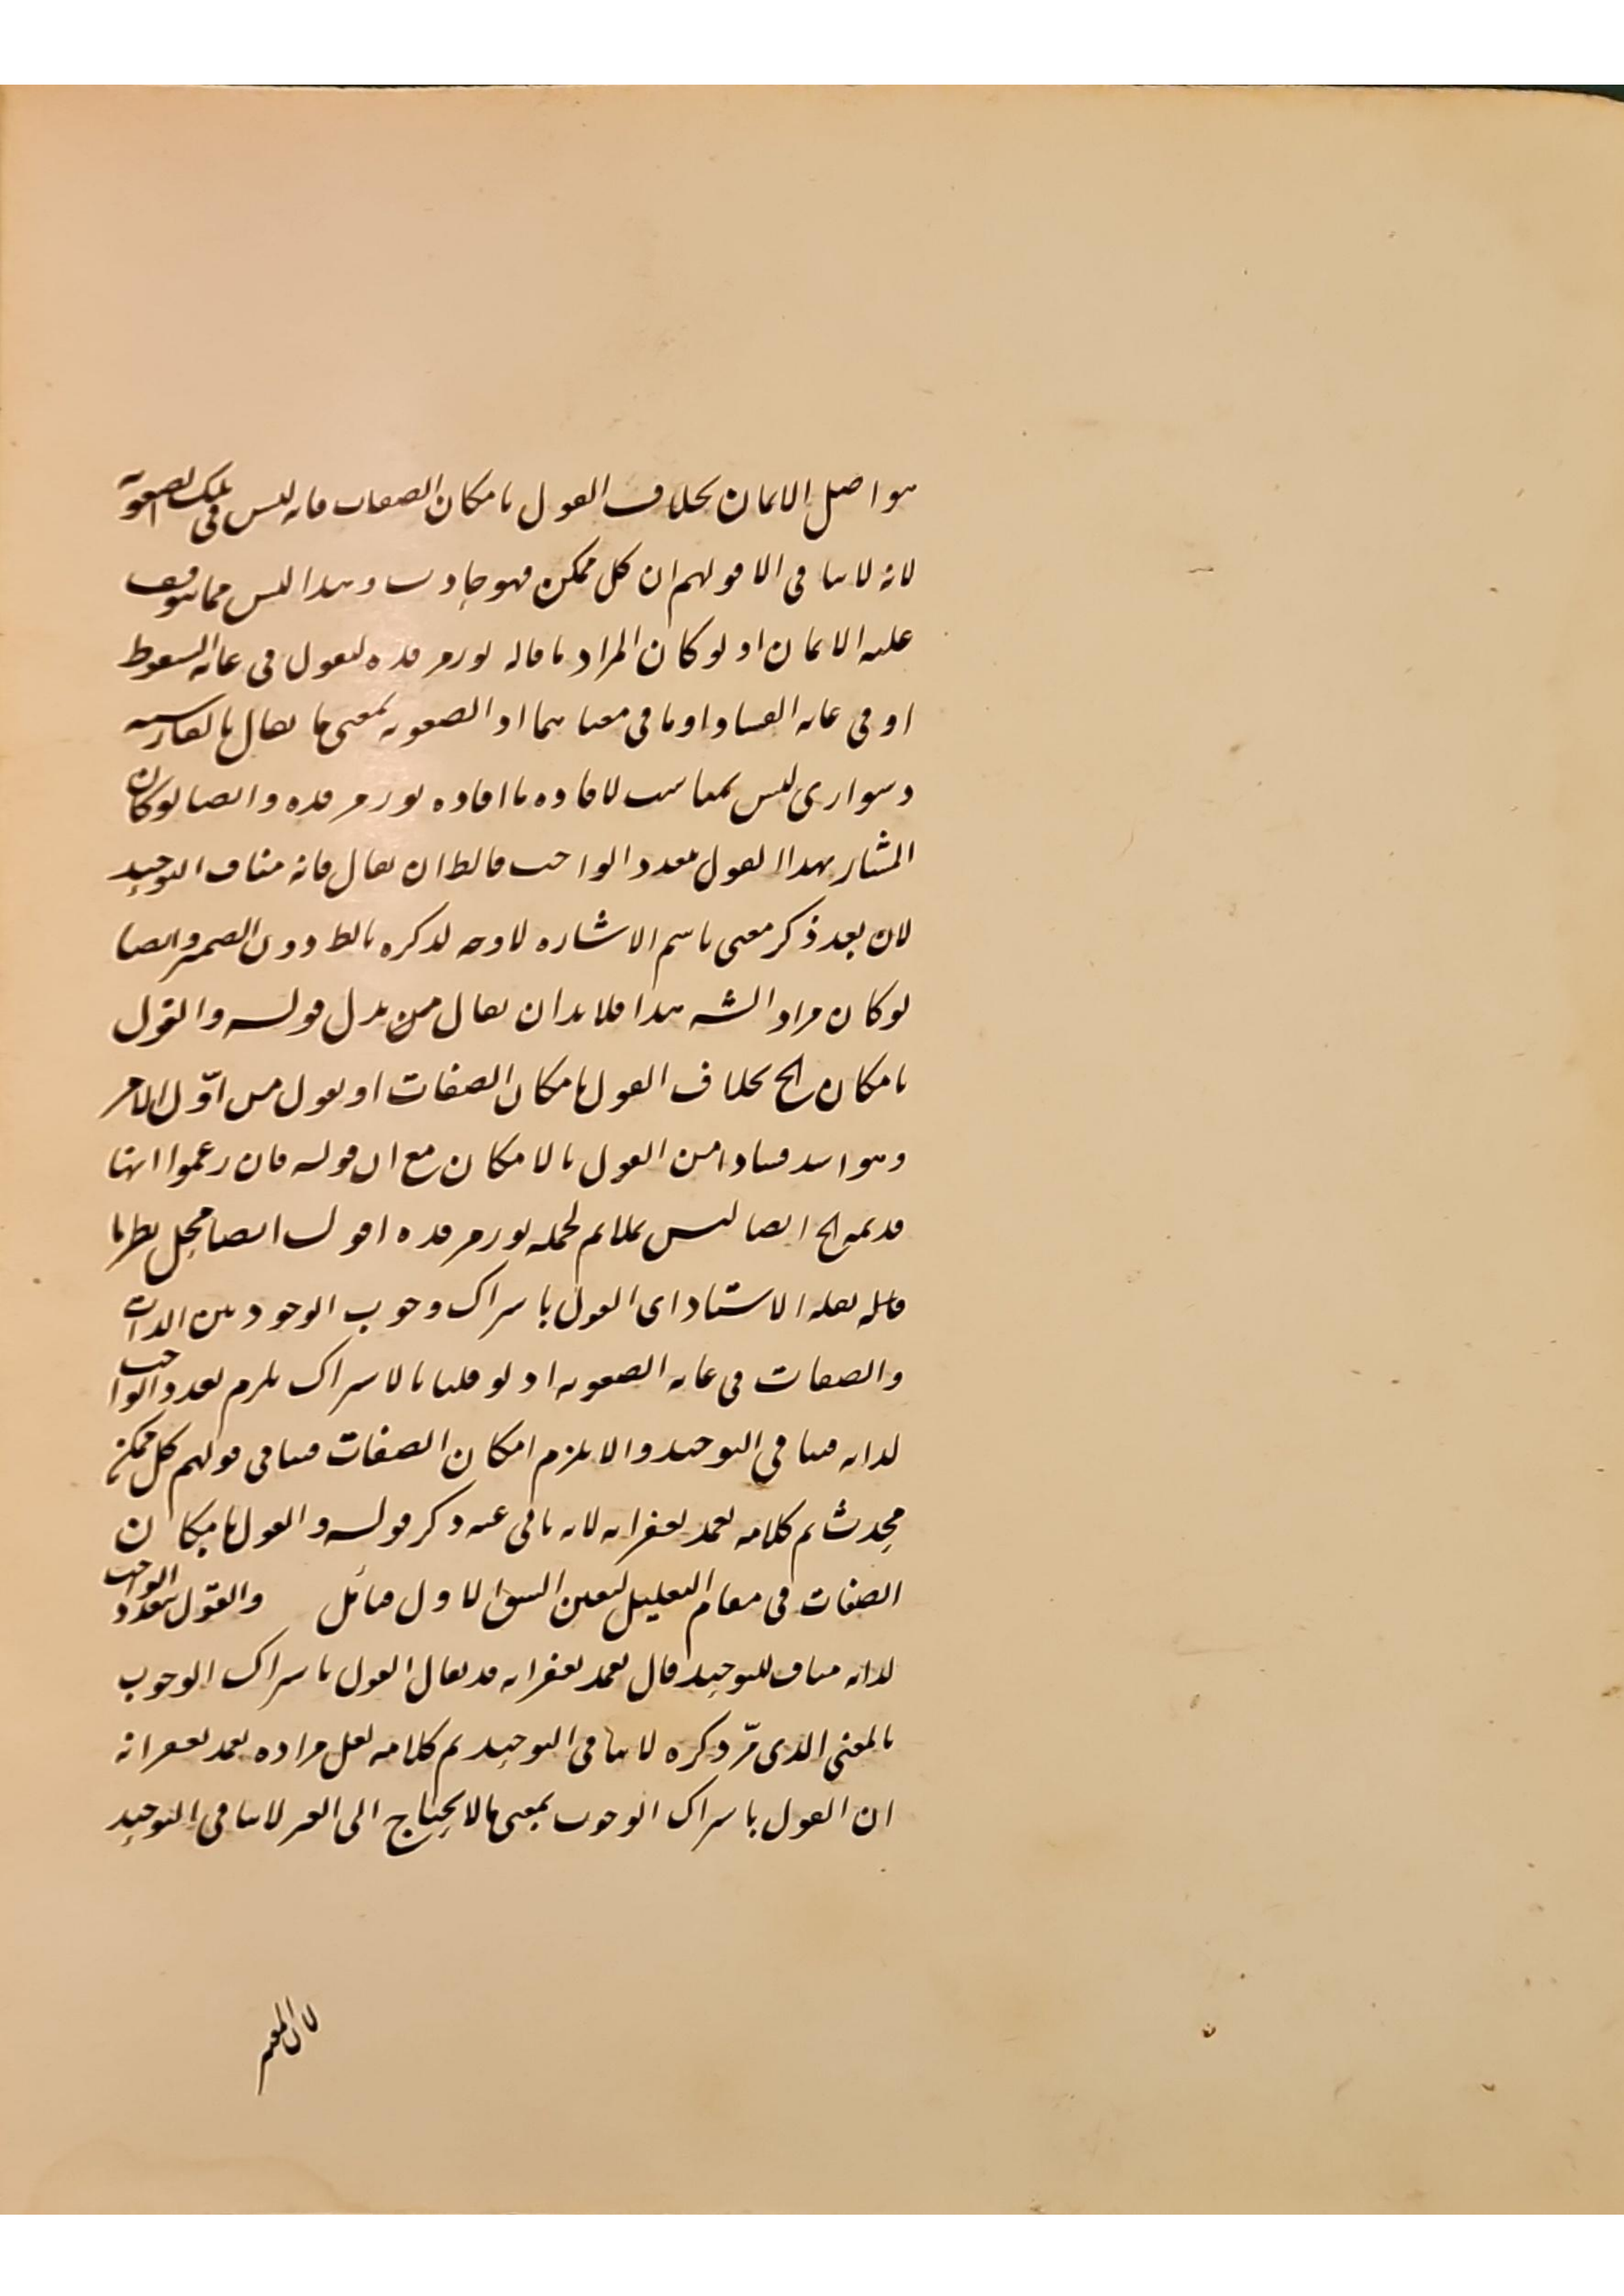 هو اصل الايمان بخلاف القول بامكان الصفات فانه ليس في تلك الصعوبة
لانه لا ينافي الا قولهم ان كل ممكن فهو حادث وهذا ليس مما يتوقف
عليه الايمان اذ لو كان المراد ما قاله نور مرقده ليقول في غاية السقوط
او في غاية الفساد او ما في معناهما اذ الصعوبة بمعنى ما يقال بالفارسية
دشواري ليس بمناسب لافادة ما افاده نور مرقده وايضا لو كان
المشار بهذا القول تعدد الواجب فالظ ان يقال فانه مناف التوحيد
لان بعد ذكر معنى باسم الاشاره لا وجه لذكره بالظ دون الضمير وايضا
لو كان مراد الشه هذا فلا بد ان يقال من بدل قوله والقول
بامكان الخ بخلاف القول بامكان الصفات او يقول من اوّل الامر
وهو اشد فسادا من القول بالامكان مع ان قوله فان زعموا انها
قديمة الخ ايضا ليس بملائم لحمله نور مرقده اقول ايضا محل نظر ما
قاله نقله الاستاد اي القول باشتراك وجوب الوجود بين الذات
والصفات في غاية الصعوبة اذ لو قلنا بالاشتراك يلزم تعدد الواجب
لذاته فينافي التوحيد والا يلزم امكان الصفات فينافي قولهم كل ممكن
محدث تم كلامه تغمد بغفرانه لانه يابى عنه ذكر قوله والقول بامكان
الصفات في مقام التعليل لتعين الشق الاول فتأمل والقول بتعدد الواجب
لذاته مناف للتوحيد قال تغمد بغفرانه قد يقال القول باشتراك الوجوب
بالمعنى الذي مرّ ذكره لا ينافي التوحيد تم كلامه لعل مراده تغمد بغفرانه
ان القول باشتراك الوجوب بمعنى ما لا يحتاج الى الغير لا ينافي التوحيد